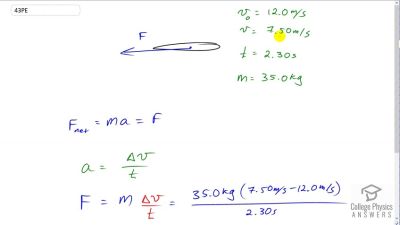 43PE
v₀ = 12.0 m/s
F
v = 7.50 m/s
t = 2.30s
m = 35.0 kg
Fnet = ma = F
a = Δv/t
F = m Δv/t = 35.0kg (7.50m/s - 12.0m/s) / 2.30s
College Physics
ANSWERS